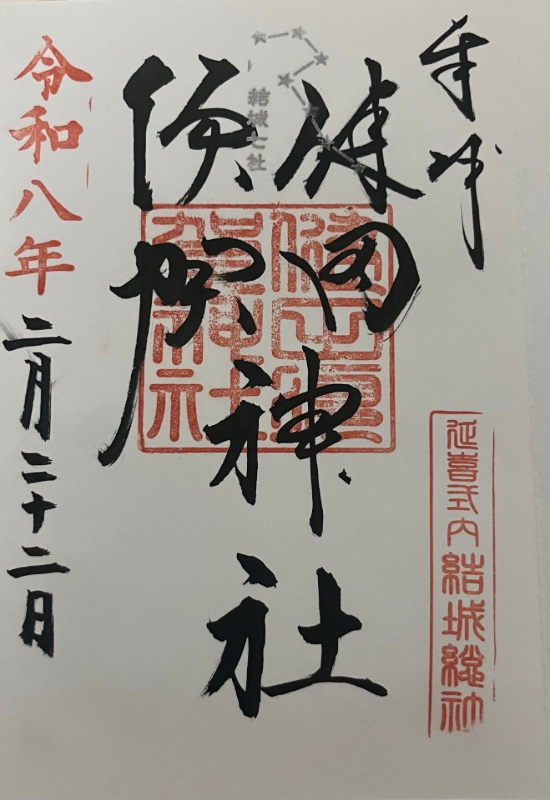 奉拝
延喜式内結城総社
結城七社
健田
須賀
神社
令和八年
二月二十二日